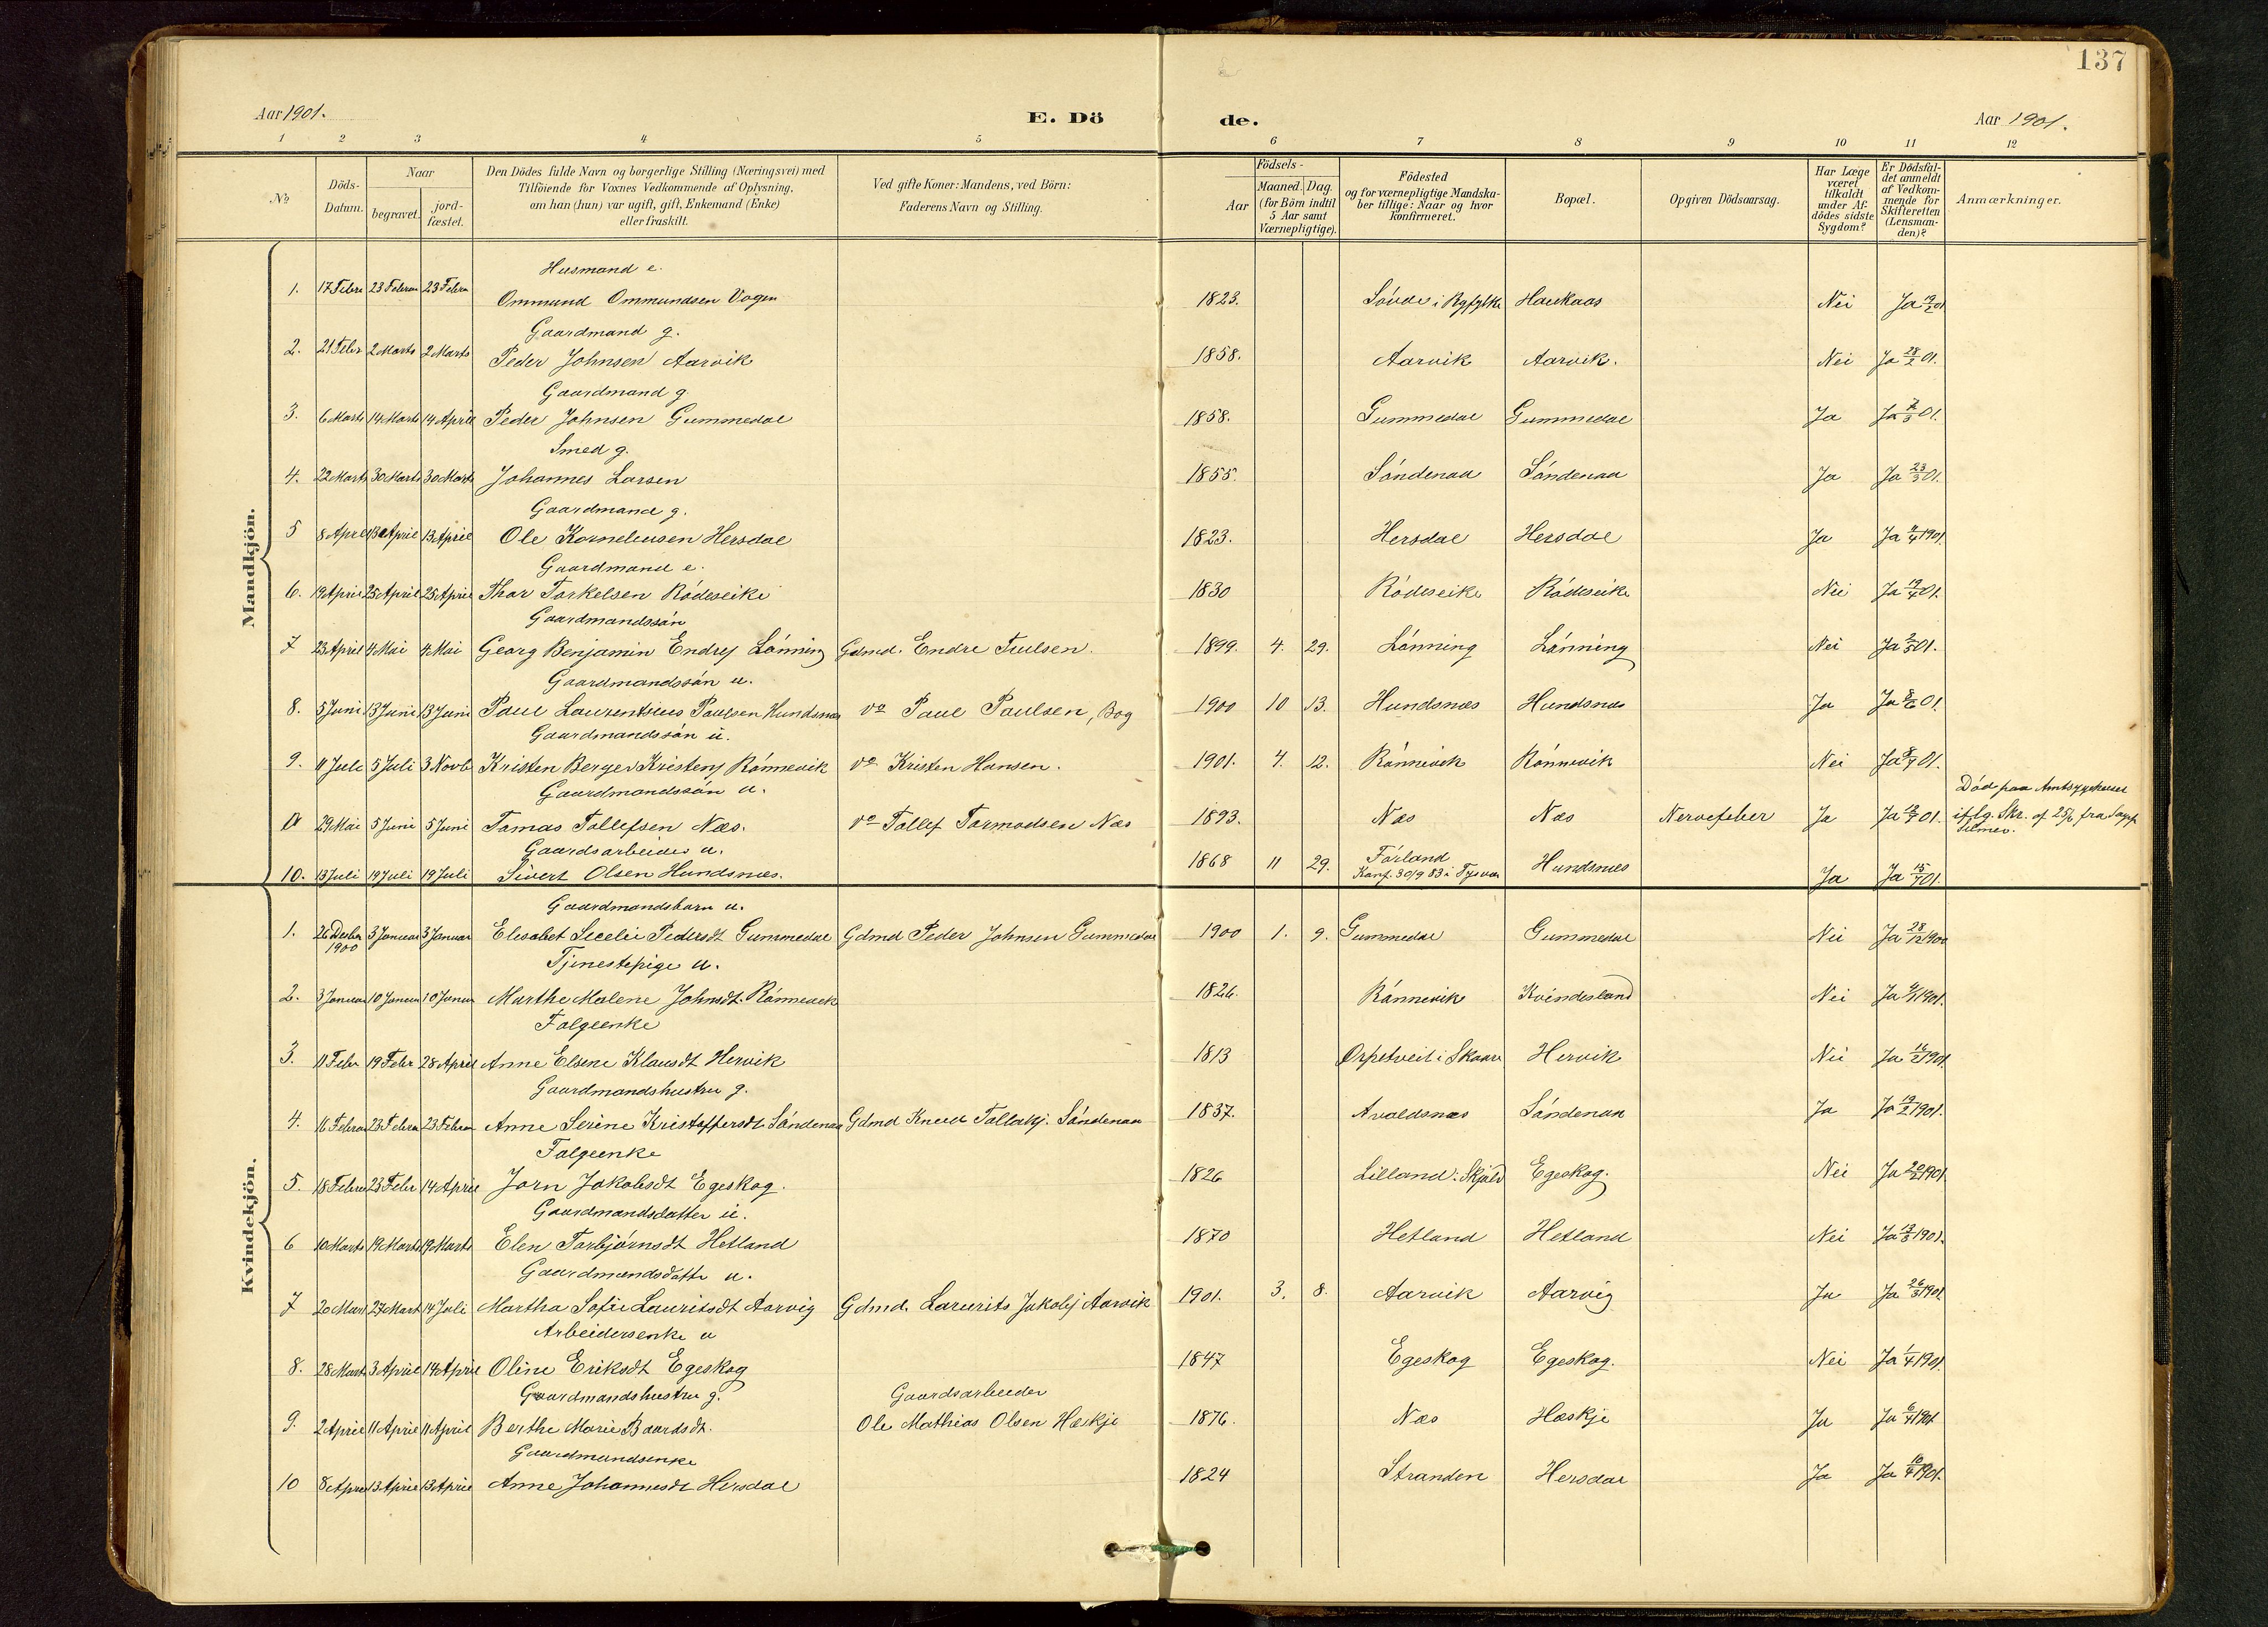 137
Aar 1901.
E. Dö
de.
Aar 1901.
1 2 3 4 5 6 7 8 9 10 11 12
No
Döds-Datum.
Naar
begravet.
jord-fæstet.
Den Dödes fulde Navn og borgerlige Stilling (Næringsvei) med
Tilföiende for Voxnes Vedkommende af Oplysning,
om han (hun) var ugift, gift, Enkemand (Enke)
eller fraskilt.
Ved gifte Koner: Mandens, ved Börn:
Faderens Navn og Stilling.
Födsels-
Aar
Maaned. Dag.
(for Börn indtil
5 Aar samt
Værnepligtige).
Födested
og for værnepligtige Mandska-
ber tillige: Naar og hvor
Konfirmeret.
Bopæl.
Opgiven Dödsaarsag.
Har Læge
været
tilkaldt
under Af-
dödes sidste
Sygdom?
Er Dödsfal-
det anmeldt
af Vedkom-
mende for
Skifteretten
(Lensman-
den)?
Anmærkninger.
Mandkjön.
Husmand e.
1. 17 Febr 23 Februar 23 Febru Ommund Ommundsen Vagen 1823. Søvde i Ryfylke Haukaas Nei Ja 19/2 01
Gaardmand g.
2. 21 Febr 2 Marts 2 Marts Peder Johnsen Aarvik 1858. Aarvik Aarvik. Nei Ja 28/2 01.
Gaardmand g.
3. 6 Marts 14 Marts 14 April Peder Johnsen Gummedal 1858. Gummedal Gummedal Ja Ja 01.
Smed g.
4. 22 Marts 30 Marts 30 Marts Johannes Larsen 1855. Søndenaa Søndenaa Ja Ja 23/3 01.
Gaardmand g.
5 8 April 13 April 13 April Ole Korneliusen Hersdal 1823. Hersdal Hersdal Ja Ja 1901.
Gaardmand e.
6. 19 April 25 April 25 April Thor Torkelsen Rødeseike 1830 Rødeseike Rødseike Nei Ja 19/4 01.
Gaardmandssøn
7 23 April 4 Mai 4 Mai Georg Benjamin Endrej Lønning Gdmd. Endre Tuelsen. 1899. 4. 29. Lønning Lønning Nei Ja 2/5 01.
Gaardmandssøn u.
8. 5 Juni 13 Juni 13 Juni Paul Laurentsius Paulsen Hundsnæs vo Paul Paulsen, Bog 1900 10 13. Hundsnæs Hundsnæs Ja Ja 8/6 01.
Gaardmandssøn u.
9. 11 Juli 5 Juli 3 Novb Kristen Berger Kristens Rønnevik vo Kristen Hansen. 1901. 4. 12. Rønnevik Rønnevik Nei Ja 01.
Gaardmandssøn u.
29 Mai 5 Juni 5 Juni Tomas Tollefsen Næs. vo Tollef Tormodsen Næs 1893. Næs Næs Nervefeber Ja Ja 01. Død paa Amtssygehuset
iflg. Skr. af fra
Gaardsarbeider u.
10. 13 Juli 19 Juli 19 Juli Sivert Olsen Hundsnæs. 1868 11 29. Førland
Konf. 30/9 83 i Tysvær Hundsnæs Ja Ja 15/7 01.
Kvindekjön.
Gaardmandsbarn u.
1. 26 Decbr
1900 3 Januar 3 Januar Elesabet Secelie Pedersdt Gummedal Gdmd Peder Johnsen Gummedal 1900 1. 9. Gummedal Gummedal Nei Ja 28/12 1900
Tjenestepige u.
2. 3 Januar 10 Januar 10 Januar Marthe Malene Johnsdt. Rønnevik 1826. Rønnevik Kvindesland Nei Ja 1901.
Folgeenke
3. 11 Febr 19 Febr 28 April Anne Elsene Klausdt Hervik 1813 Ørpetveit i Skaare Hervik Nei Ja 16/2 1901
Gaardmandshustru g.
4. 16 Februar 23 Februar 23 Februar Anne Serine Kristoffersdt Søndenaa Gdmd Knud Tollaksj. Søndenaa 1837. Avaldsnæs Søndenaa Ja Ja 19/2 1901.
Folgeenke
5. 18 Februar 23 Febr 14 April Jorn Jakobsdt Egeskog. 1826 Lilland i Skjold Egeskog. Nei Ja 20/2 1901
Gaardmandsdatter u.
6 10 Marts 19 Marts 19 Marts Elen Torbjørnsdt Hetland 1870 Hetland Hetland Nei Ja 13/3 1901.
Gaardmandsdattr u.
7 20 Mart 27 Mart 14 Juli Martha Sofie Lauritsdt Aarvig Gdmd. Laurits Jakobsj Aarvik 1901. 3. 8. Aarvik Aarvig Ja Ja 26/3 1901
Arbeidersenke u
8. 28 Mart 3 April 14 April Oline Eriksdt Egeskog 1847 Egeskog Egeskog. Nei Ja 1/4 1901.
Gaardmandshustru g. Gaardsarbeider
9. 2 April 11 April 11 April Berthe Marie Baardsdt. Ole Mathias Olsen Hæskje 1876. Næs Hæskje Ja Ja 6/4 1901
Gaardmandsenke
10 8 April 13 April 13 April Anne Johannesdt Hersdal 1824 Stranden Hersdal Ja Ja 10/4 1901.